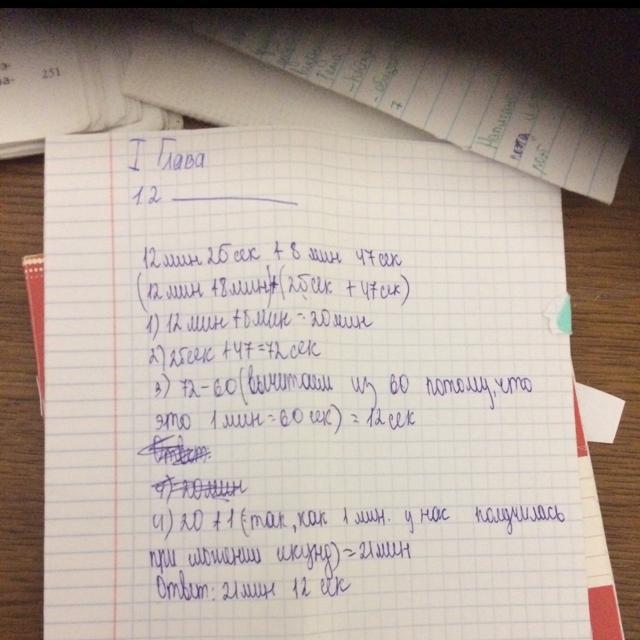 251
I Глава
1.2
12 мин 25 сек + 8 мин 47 сек
(12 мин + 8 мин) + (25 сек + 47 сек)
1) 12 мин + 8 мин = 20 мин
2) 25 сек + 47 = 72 сек
3) 72 - 60 (вычитаем из 60 потому, что
это 1 мин = 60 сек) = 12 сек
Ответ:
4) 20 мин
4) 20 + 1 (так, как 1 мин. у нас получилась
при сложении секунд) = 21 мин
Ответ: 21 мин 12 сек
7